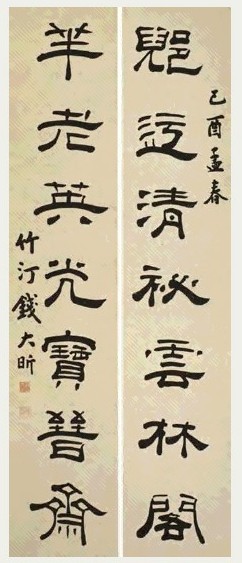 己酉孟春
郳迂清祕雲林閣
羋老英光寶晉齋
竹汀錢大昕